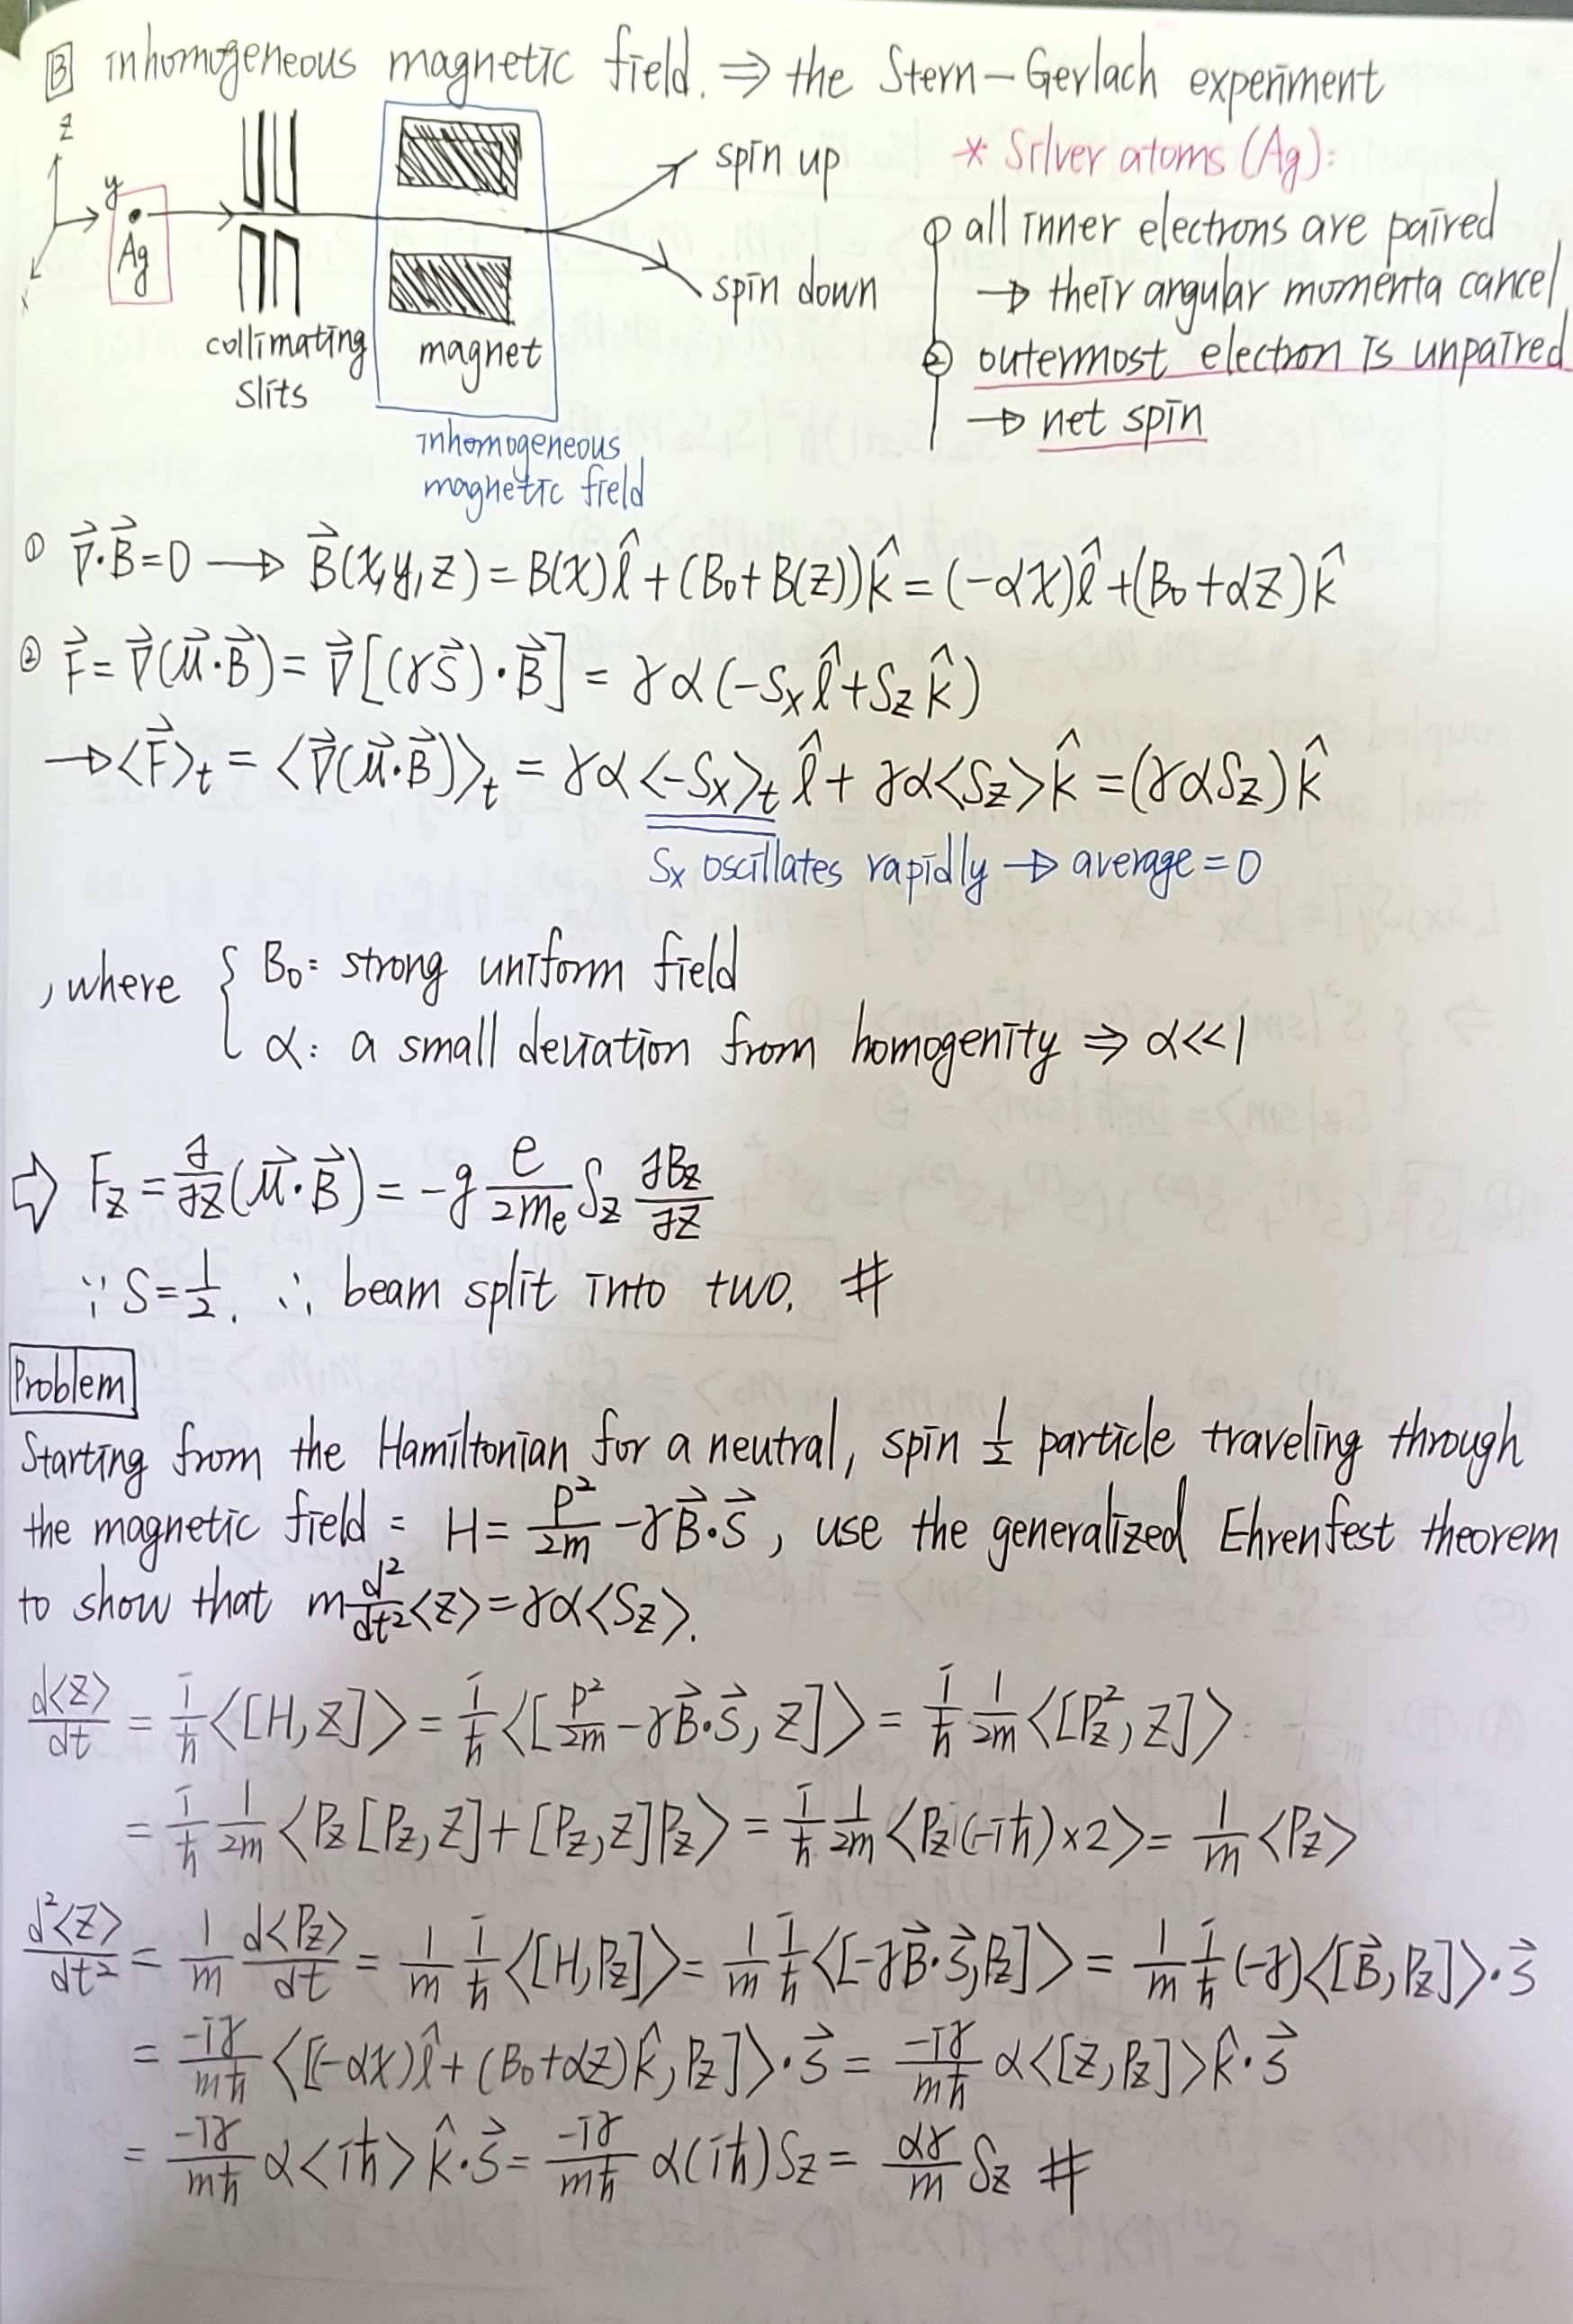 B inhomogeneous magnetic field. ⇒ the Stern-Gerlach experiment
z
y
x
Ag
collimating
slits
magnet
inhomogeneous
magnetic field
spin up
spin down
* Silver atoms (Ag):
① all inner electrons are paired
→ their angular momenta cancel
② outermost electron is unpaired
→ net spin
① ∇⃗·B⃗=0 → B⃗(x,y,z)=B(x)î+(B₀+B(z))k̂=(-αx)î+(B₀+αz)k̂
② F⃗=∇⃗(μ⃗·B⃗)=∇⃗[(γS⃗)·B⃗]=γα(-Sₓî+S_z k̂)
→⟨F⃗⟩_t=⟨∇⃗(μ⃗·B⃗)⟩_t=γα⟨-Sₓ⟩_t î+γα⟨S_z⟩k̂=(γαS_z)k̂
Sₓ oscillates rapidly → average=0
, where { B₀: strong uniform field
α: a small deviation from homogenity ⇒ α<<1
⇒ F_z=∂/∂z(μ⃗·B⃗)=-g e/2mₑ S_z ∂B_z/∂z
∵ S=1/2. ∴ beam split into two. #
Problem
Starting from the Hamiltonian for a neutral, spin 1/2 particle traveling through
the magnetic field = H=P²/2m-γB⃗·S⃗, use the generalized Ehrenfest theorem
to show that m d²/dt²⟨z⟩=γα⟨S_z⟩.
d⟨z⟩/dt=i/ħ⟨[H,z]⟩=i/ħ⟨[P²/2m-γB⃗·S⃗,z]⟩=i/ħ 1/2m⟨[P_z²,z]⟩
=i/ħ 1/2m⟨P_z[P_z,z]+[P_z,z]P_z⟩=i/ħ 1/2m⟨P_z(-iħ)×2⟩=1/m⟨P_z⟩
d²⟨z⟩/dt²=1/m d⟨P_z⟩/dt=1/m i/ħ⟨[H,P_z]⟩=1/m i/ħ⟨[-γB⃗·S⃗,P_z]⟩=1/m i/ħ(-γ)⟨[B⃗,P_z]⟩·S⃗
=-iγ/mħ⟨[(-αx)î+(B₀+αz)k̂,P_z]⟩·S⃗=-iγ/mħ α⟨[z,P_z]⟩k̂·S⃗
=-iγ/mħ α⟨iħ⟩k̂·S⃗=-iγ/mħ α(iħ)S_z=αγ/m S_z #